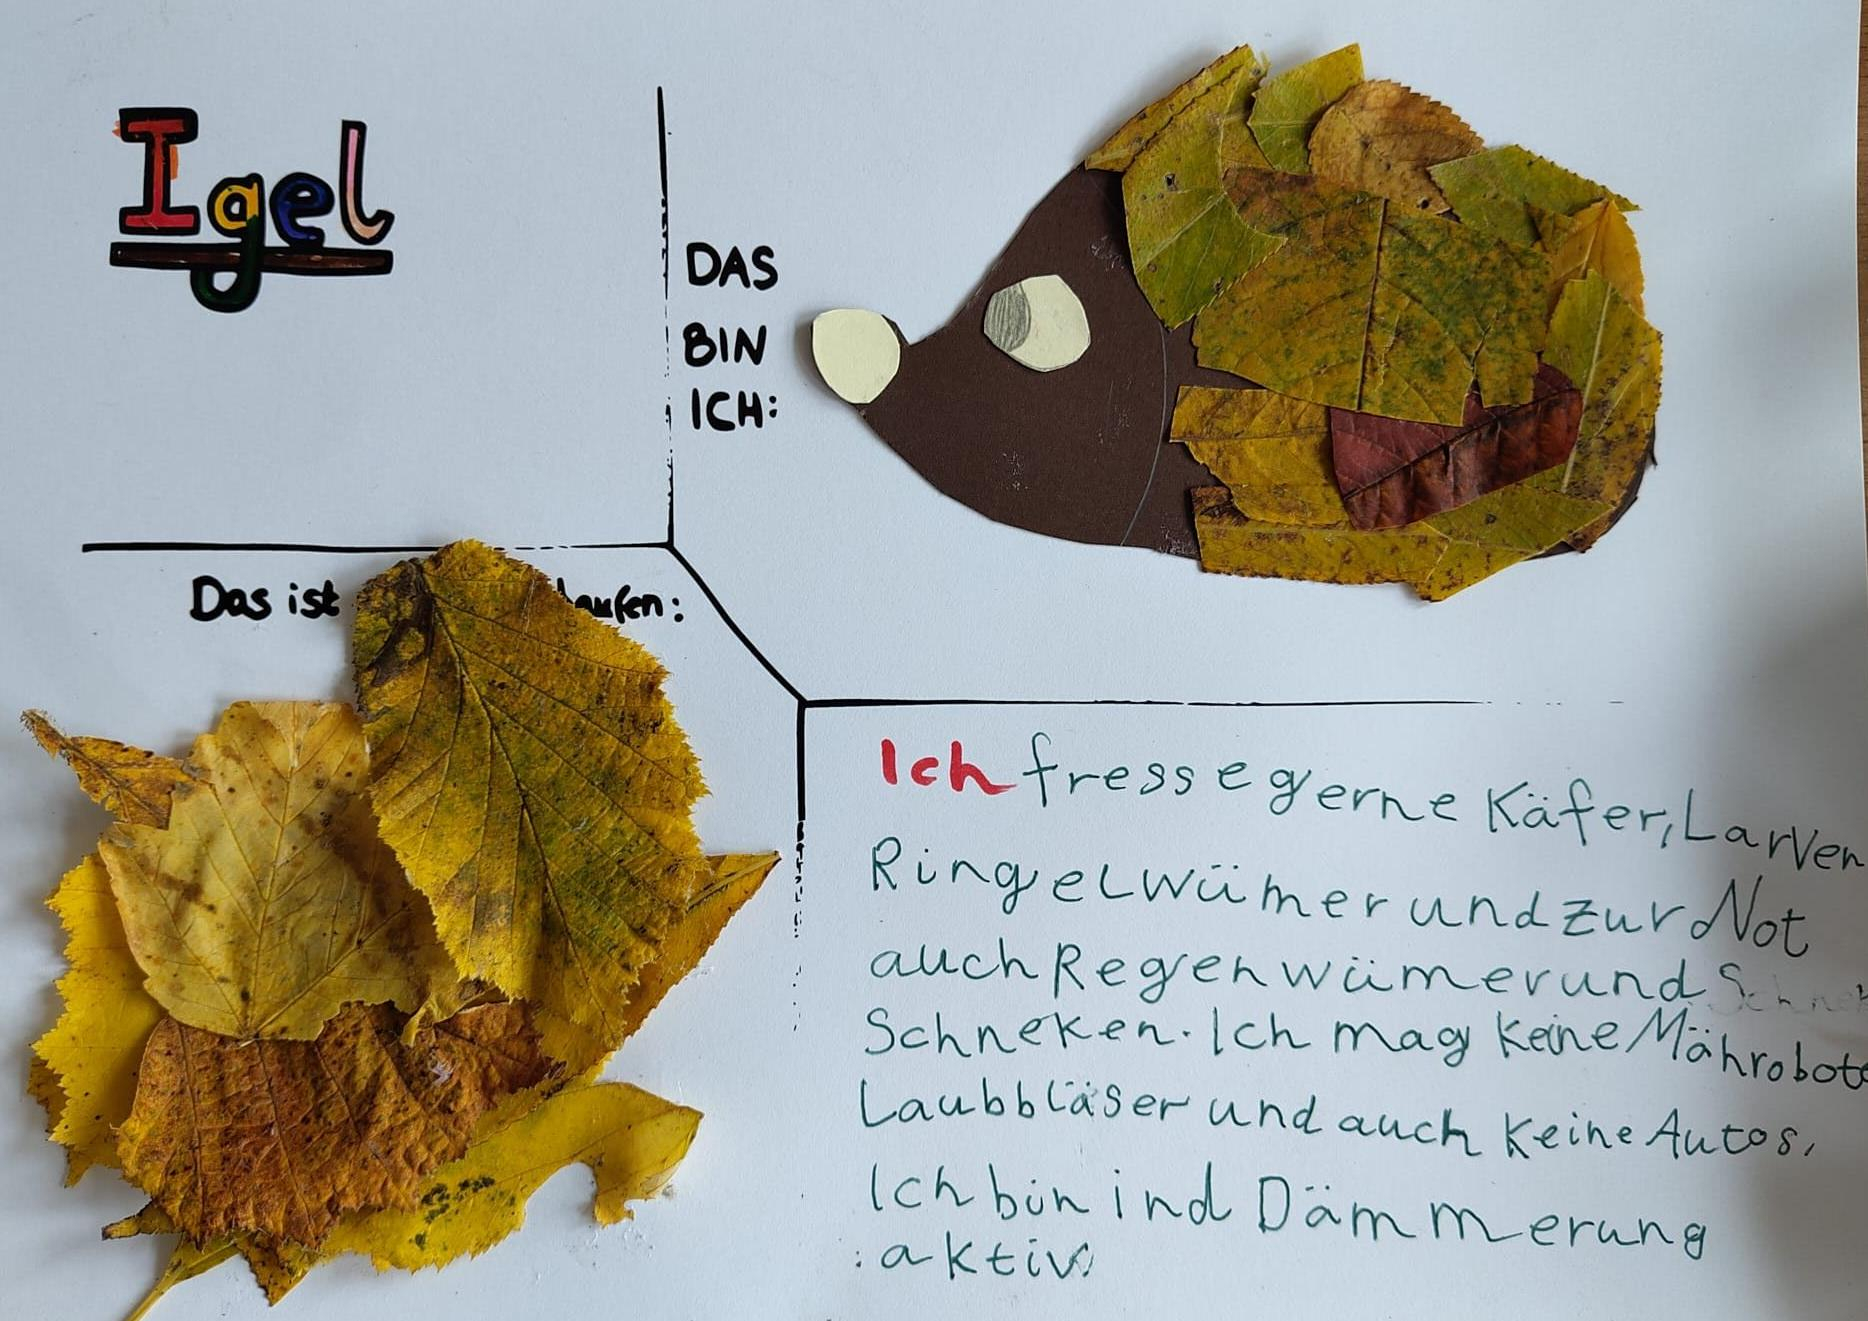 Igel
DAS
BIN
ICH:
Das ist
Ich fresse gerne Käfer, Larven
Ringelwümer und zur Not
auch Regenwümer und
Schneken. Ich mag keine
Laubbläser und auch keine Autos,
Ich bin ind Dämmerung
aktiv